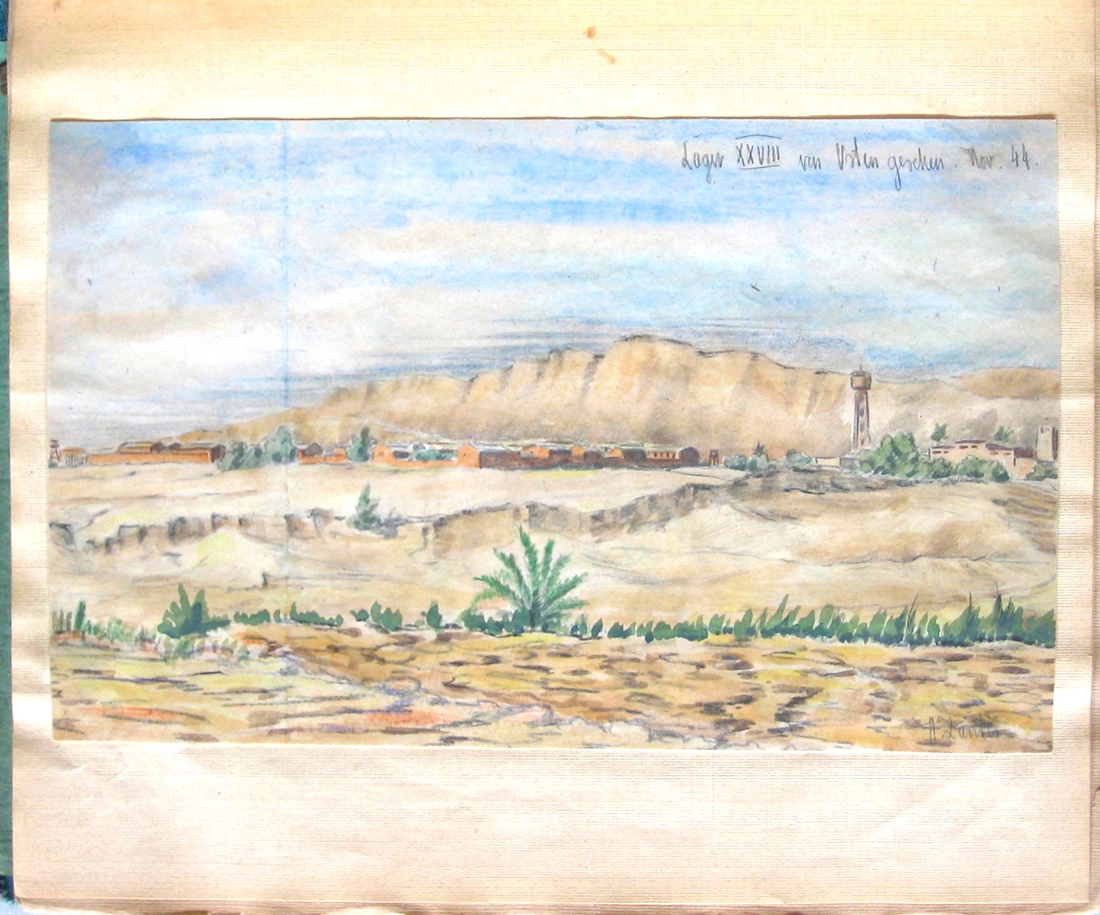 Lager XXVIII von Osten gesehen. Nov. 44.